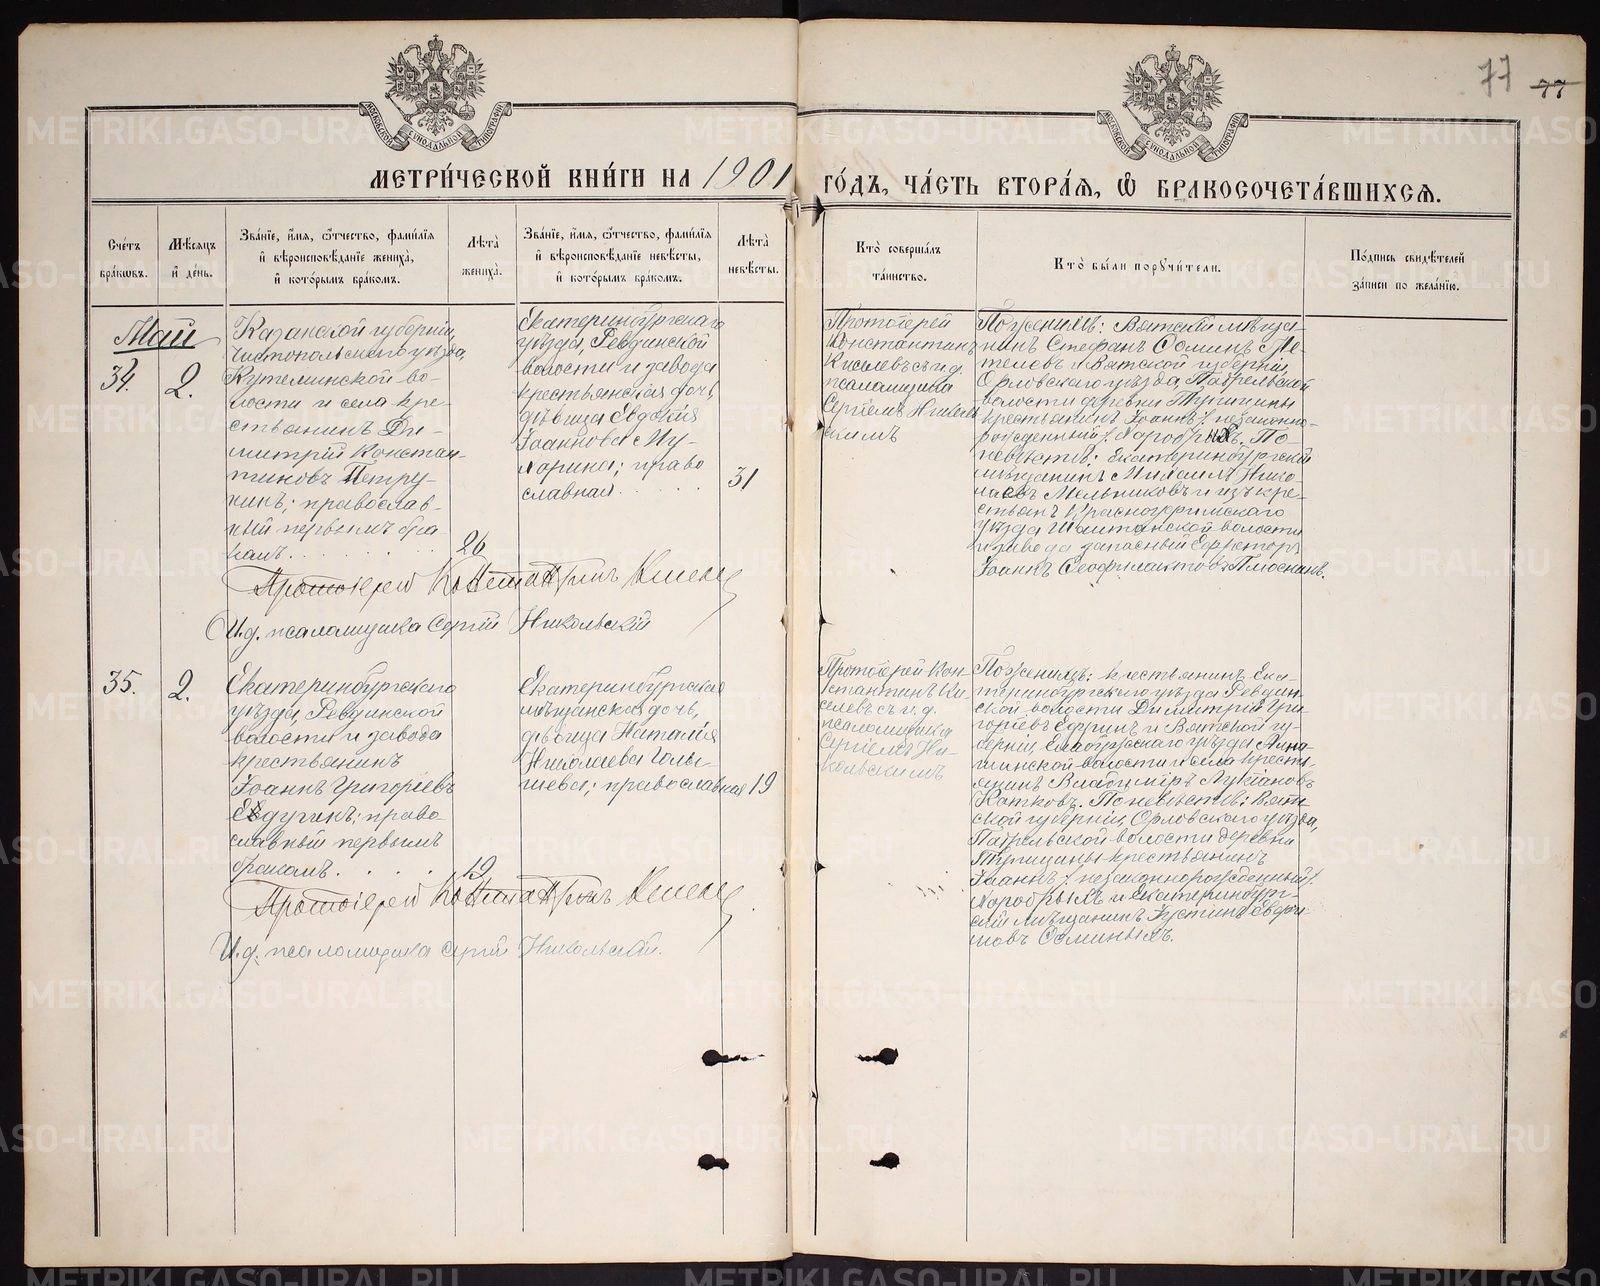 77 77
МОСКОВСКОЙ СѴНОДАЛЬНОЙ ТИПОГРАФІИ
МОСКОВСКОЙ СѴНОДАЛЬНОЙ ТИПОГРАФІИ
МЕТРИ́ЧЕСКОЙ КНИ́ГИ НА 1901 ГО́ДЪ, ЧА́СТЬ ВТОРА́Ѧ, Ѽ БРАКОСОЧЕТА́ВШИХСѦ.
Сче́тъ
бра́кѡвъ.
Мѣ́сѧцъ
и҆ де́нь.
Зва́нїе, и҆́мѧ, ѻ҆́тчество, фами́лїѧ
и҆ вѣроисповѣ́данїе жениха̀,
и҆ кото́рымъ бра́комъ.
Лѣ́та
жениха̀.
Зва́нїе, и҆́мѧ, ѻ҆́тчество, фами́лїѧ
и҆ вѣроисповѣ́данїе невѣ́сты,
и҆ кото́рымъ бра́комъ.
Лѣ́та
невѣ́сты.
Кто̀ соверша́лъ
та́инство.
Кто̀ бы́ли порꙋчи́тели.
По́дпись свидѣ́телей
за́писи по жела́нїю.
Май
34.
2.
Казанской губерніи,
Чистопольскаго уѣзда,
Кутеминской во-
лости и села кре-
стьянинъ Ди-
митрій Констан-
тиновъ Петру-
нинъ; православ-
ный первымъ бра
комъ.
26
Екатеринбургскаго
уѣзда, Ревдинской
волости и завода
крестьянская дочь,
дѣвица Евдокія
Іоаннова Му-
ларина; право
славная
31
Протоіерей
Константинъ
Киселевъ съ и.д.
псаломщика
Сергіемъ Николь
скимъ
По женихѣ: Вятскій мѣща-
нинъ Стефанъ Соминъ Ме-
телевъ и Вятской губерніи,
Орловскаго уѣзда, Пабрельской
волости деревни Тупицины
крестьянинъ Іоаннъ /незаконно-
рожденный/ Хоробрыхъ. По
невѣстѣ: Екатеринбургскій
мѣщанинъ Михаилъ Нико-
лаевъ Мельниковъ и изъ кре-
стьянъ Красноуфимскаго
уѣзда Шайтанской волости
и завода запасный Ефрейторъ
Іоаннъ Ѳеофилактовъ Плоснинъ.
Протоіерей Константинъ Киселевъ
И.д. псаломщика Сергій Никольскій
35.
2.
Екатеринбургскаго
уѣзда, Ревдинской
волости и завода
крестьянинъ
Іоаннъ Григоріевъ
Едугинъ; право-
славный первымъ
бракомъ.
19
Екатеринбургская
мѣщанская дочь,
дѣвица Наталія
Николаева Голы-
шева; православная
19
Протоіерей Кон
стантинъ Ки-
селевъ съ и.д.
псаломщика
Сергіемъ Ни-
кольскимъ
По женихѣ: крестьянинъ Ека-
теринбургскаго уѣзда Ревдин-
ской волости Димитрій Гри-
горіевъ Ефринъ и Вятской гу-
берніи, Елабужскаго уѣзда, Анна-
шинской волости и села кресть-
янинъ Владиміръ Лукіановъ
Котковъ. По невѣстѣ: Вят-
ской губерніи, Орловскаго уѣзда,
Пабрельской волости деревни
Тупицины крестьянинъ
Іоаннъ /незаконнорожденный/
Хоробрыхъ и Екатеринбург-
скій мѣщанинъ Іустинъ Евфи-
мовъ Осминыхъ.
Протоіерей Константинъ Киселевъ
И.д. псаломщика Сергій Никольскій.
METRIKI.GASO-URAL.RU